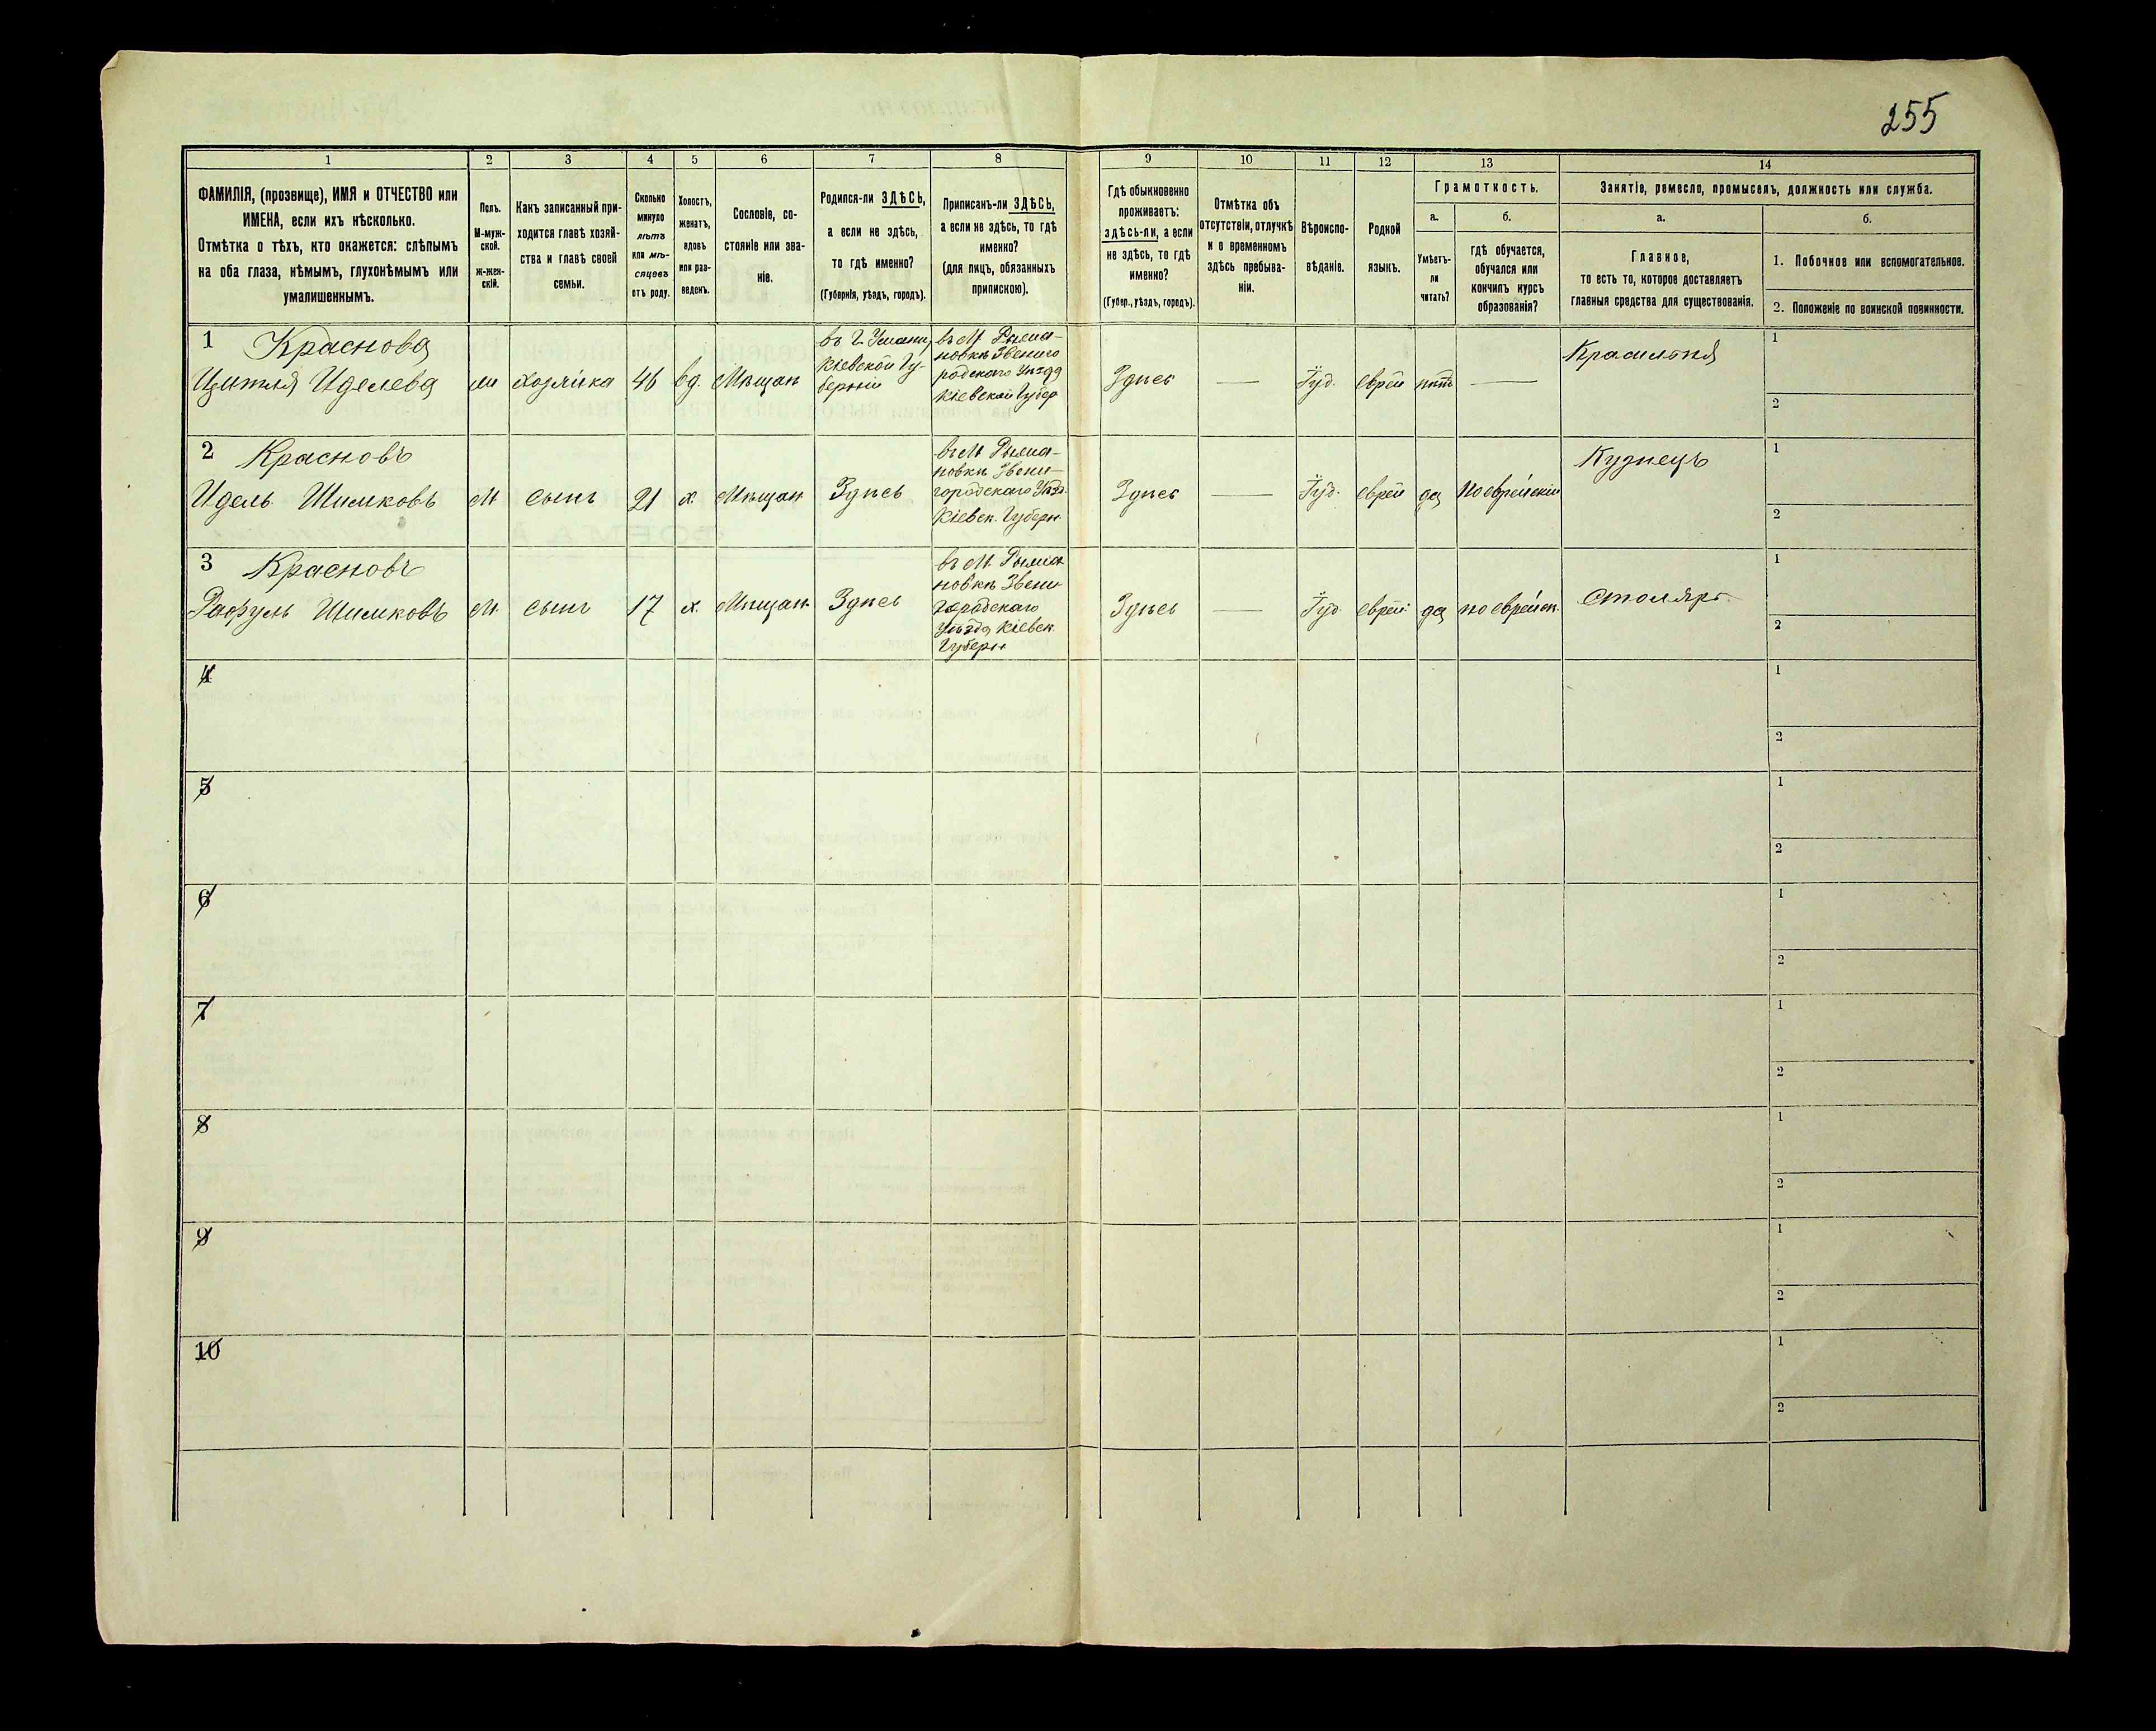 255
1 2 3 4 5 6 7 8 9 10 11 12 13 14
ФАМИЛІЯ, (прозвище), ИМЯ и ОТЧЕСТВО или
ИМЕНА, если ихъ нѣсколько.
Отмѣтка о тѣхъ, кто окажется: слѣпымъ
на оба глаза, нѣмымъ, глухонѣмымъ или
умалишеннымъ.
Полъ.
М-муж-
ской.
ж-жен-
скій.
Какъ записанный при-
ходится главѣ хозяй-
ства и главѣ своей
семьи.
Сколько
минуло
лѣтъ
или мѣ-
сяцевъ
отъ роду.
Холостъ,
женатъ,
вдовъ
или раз-
веденъ.
Сословіе, со-
стояніе или зва-
ніе.
Родился-ли ЗДѢСЬ,
а если не здѣсь,
то гдѣ именно?
(Губернія, уѣздъ, городъ).
Приписанъ-ли ЗДѢСЬ,
а если не здѣсь, то гдѣ
именно?
(для лицъ, обязанныхъ
припискою).
Гдѣ обыкновенно
проживаетъ:
здѣсь-ли, а если
не здѣсь, то гдѣ
именно?
(Губер., уѣздъ, городъ).
Отмѣтка объ
отсутствіи, отлучкѣ
и о временномъ
здѣсь пребыва-
ніи.
Вѣроиспо-
вѣданіе.
Родной
языкъ.
Грамотность.
а.
Умѣетъ-
ли
читать?
б.
гдѣ обучается,
обучался или
кончилъ курсъ
образованія?
Занятіе, ремесло, промыселъ, должность или служба.
а.
Главное,
то есть то, которое доставляетъ
главныя средства для существованія.
б.
1. Побочное или вспомогательное.
2. Положеніе по воинской повинности.
1 Краснова
Цитля Иделева
хозяйка
46
вд.
Мѣщан
въ Г. Умани,
Кіевской Гу-
берніи
въ М Рыжа-
новкѣ Звениго
родскаго Уѣзда
Кіевской Губер
Здѣсь
—
Іуд.
еврей
нѣтъ
—
Красильня
1
2
2 Красновъ
Идель Шимковъ
М
сынъ
21
х
Мѣщан
Здѣсь
въ М Рыжа-
новкѣ Звени-
городскаго Уѣзд.
Кіевск. Губерн
Здѣсь
—
Іуд.
еврей
да
По еврейски
Кузнецъ
1
2
3 Красновъ
Рафуль Шимковъ
М
сынъ
17
х.
Мѣщан
Здѣсь
въ М. Рыжа
новкѣ Звени
городскаго
Уѣзда Кіевск.
Губерн
Здѣсь
—
Іуд
еврей
да
по еврейск.
Столяръ
1
2
4
1
2
5
1
2
6
1
2
7
1
2
8
1
2
9
1
2
10
1
2